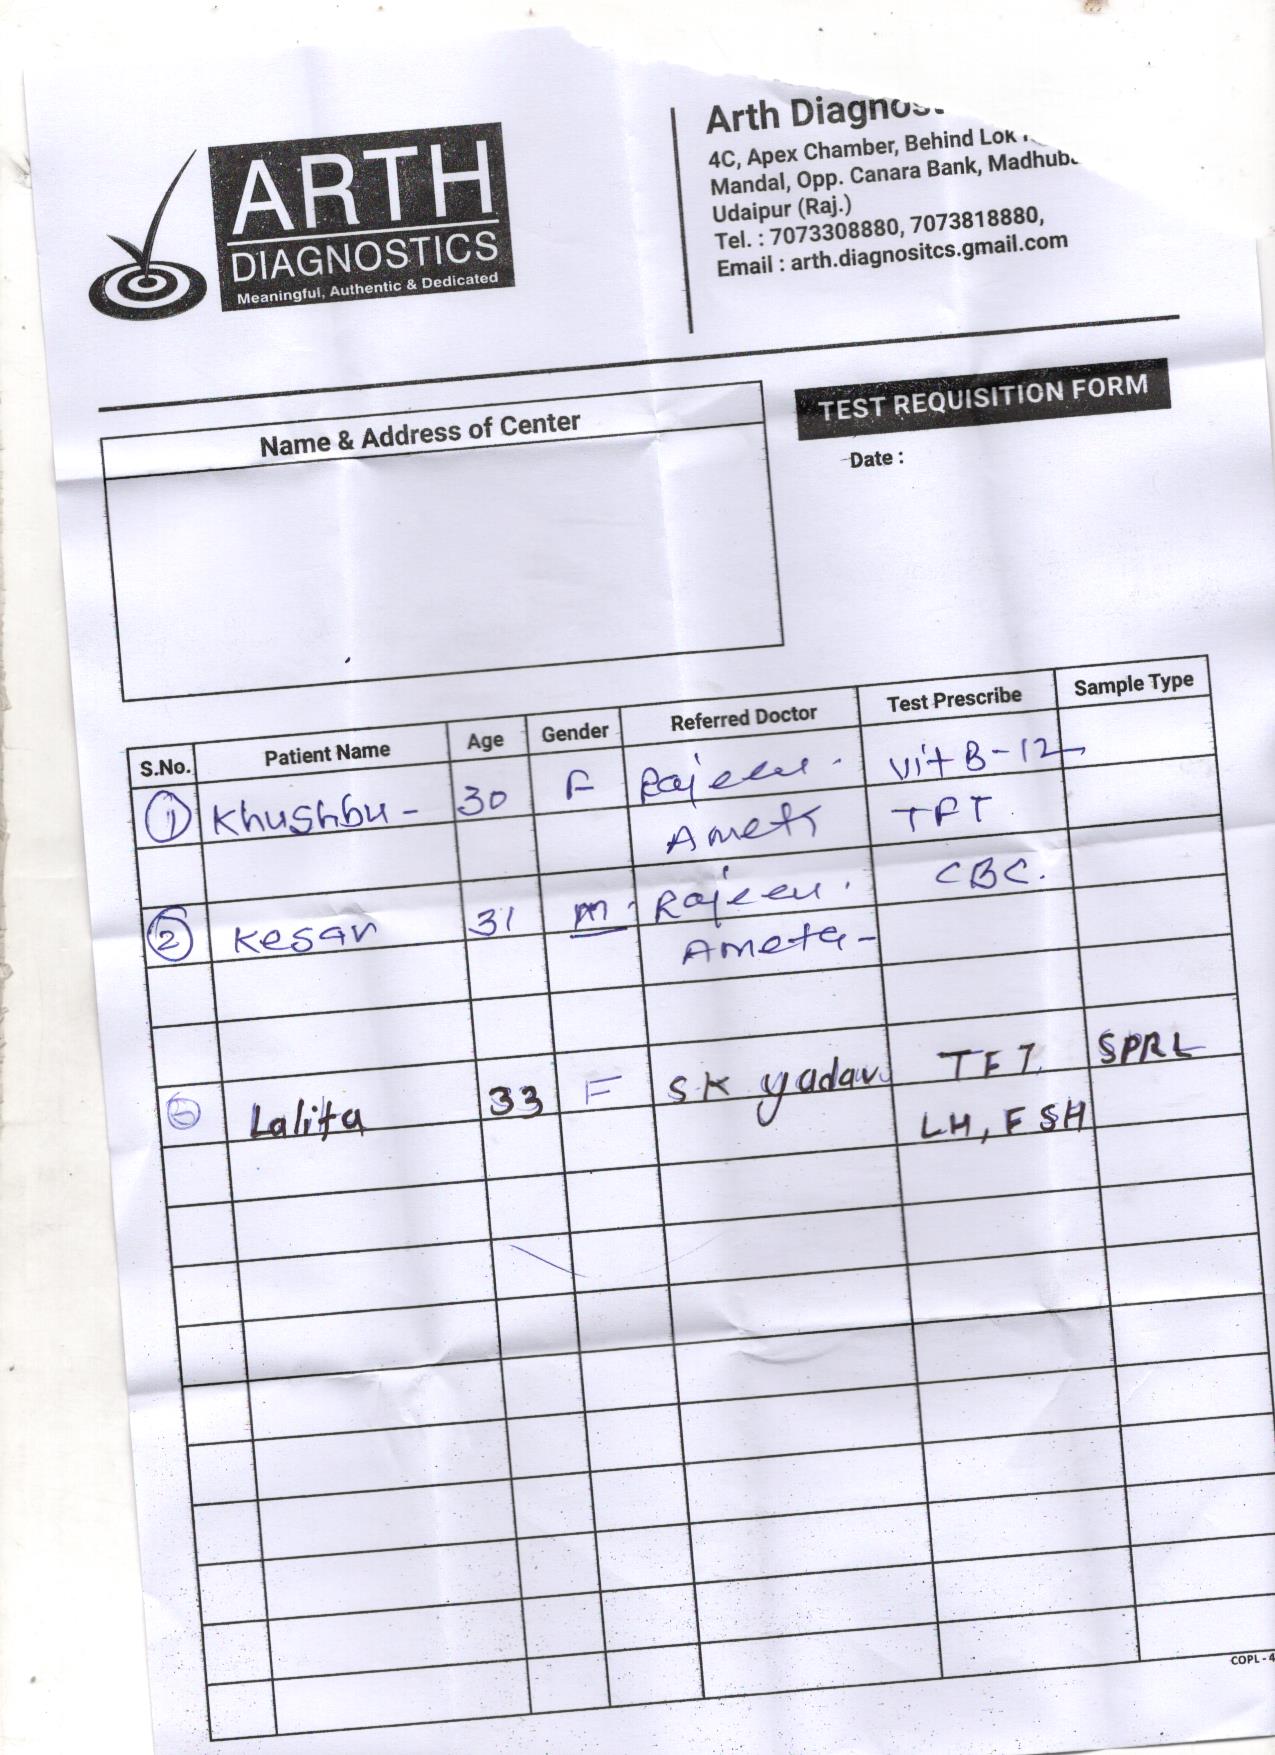 ARTH
DIAGNOSTICS
Meaningful, Authentic & Dedicated
Arth
4C, Apex Chamber, Behind Lok
Mandal, Opp. Canara Bank,
Udaipur (Raj.)
Tel. : 7073308880, 7073818880,
Email : arth.diagnositcs.gmail.com
TEST REQUISITION FORM
Date :
Name & Address of Center
S.No. Patient Name Age Gender Referred Doctor Test Prescribe Sample Type
1 Khushbu - 30 F Vit B-12
TFT
2 Kesar 31 M. CBC.
Ameta -
3 Lalita 33 F SK Yadav TFT SPRL
LH, FSH
COPL - 4